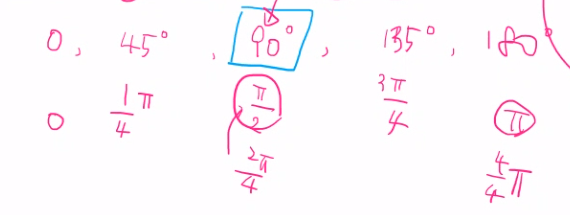 0, 45°, 90°, 135°, 180
0 1/4 π π/2 3π/4 π
2π/4 4/4 π